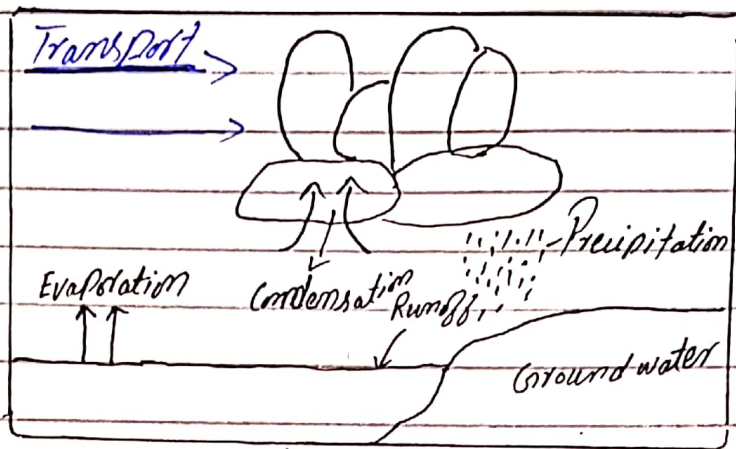 Transport
Precipitation
Evaporation
Condensation
Runoff
Ground water